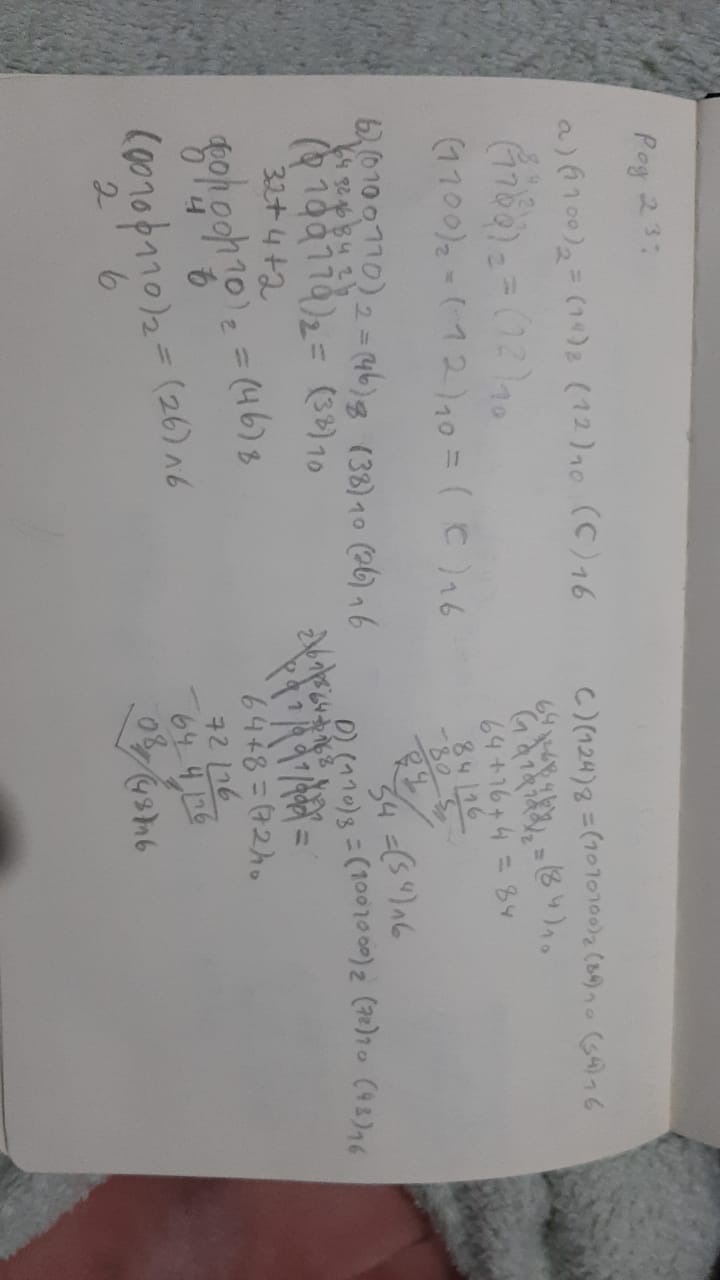 Pag 23:
a) (1100)2 = (14)2 (12)10 (C)16
8 4 2 1
(1100)2 = (12)10
(1100)2 = (12)10 = (C)16
b) (0100110)2 = (46)8 (38)10 (26)16
64 32 16 8 4 2 1
(0100110)2 = (38)10
32+4+2
000100110)2 = (46)8
0 4 6
(00100110)2 = (26)16
2 6
C) (124)8 = (1010100)2 (84)10 (54)16
64 32 16 8 4 2 1
(1010100)2 = (84)10
64+16+4 = 84
84 |16
-80 5
04
54 = (54)16
D) (110)8 = (1001000)2 (72)10 (48)16
64+8 = (72)10
72 |16
-64 4 |16
08 (48)16